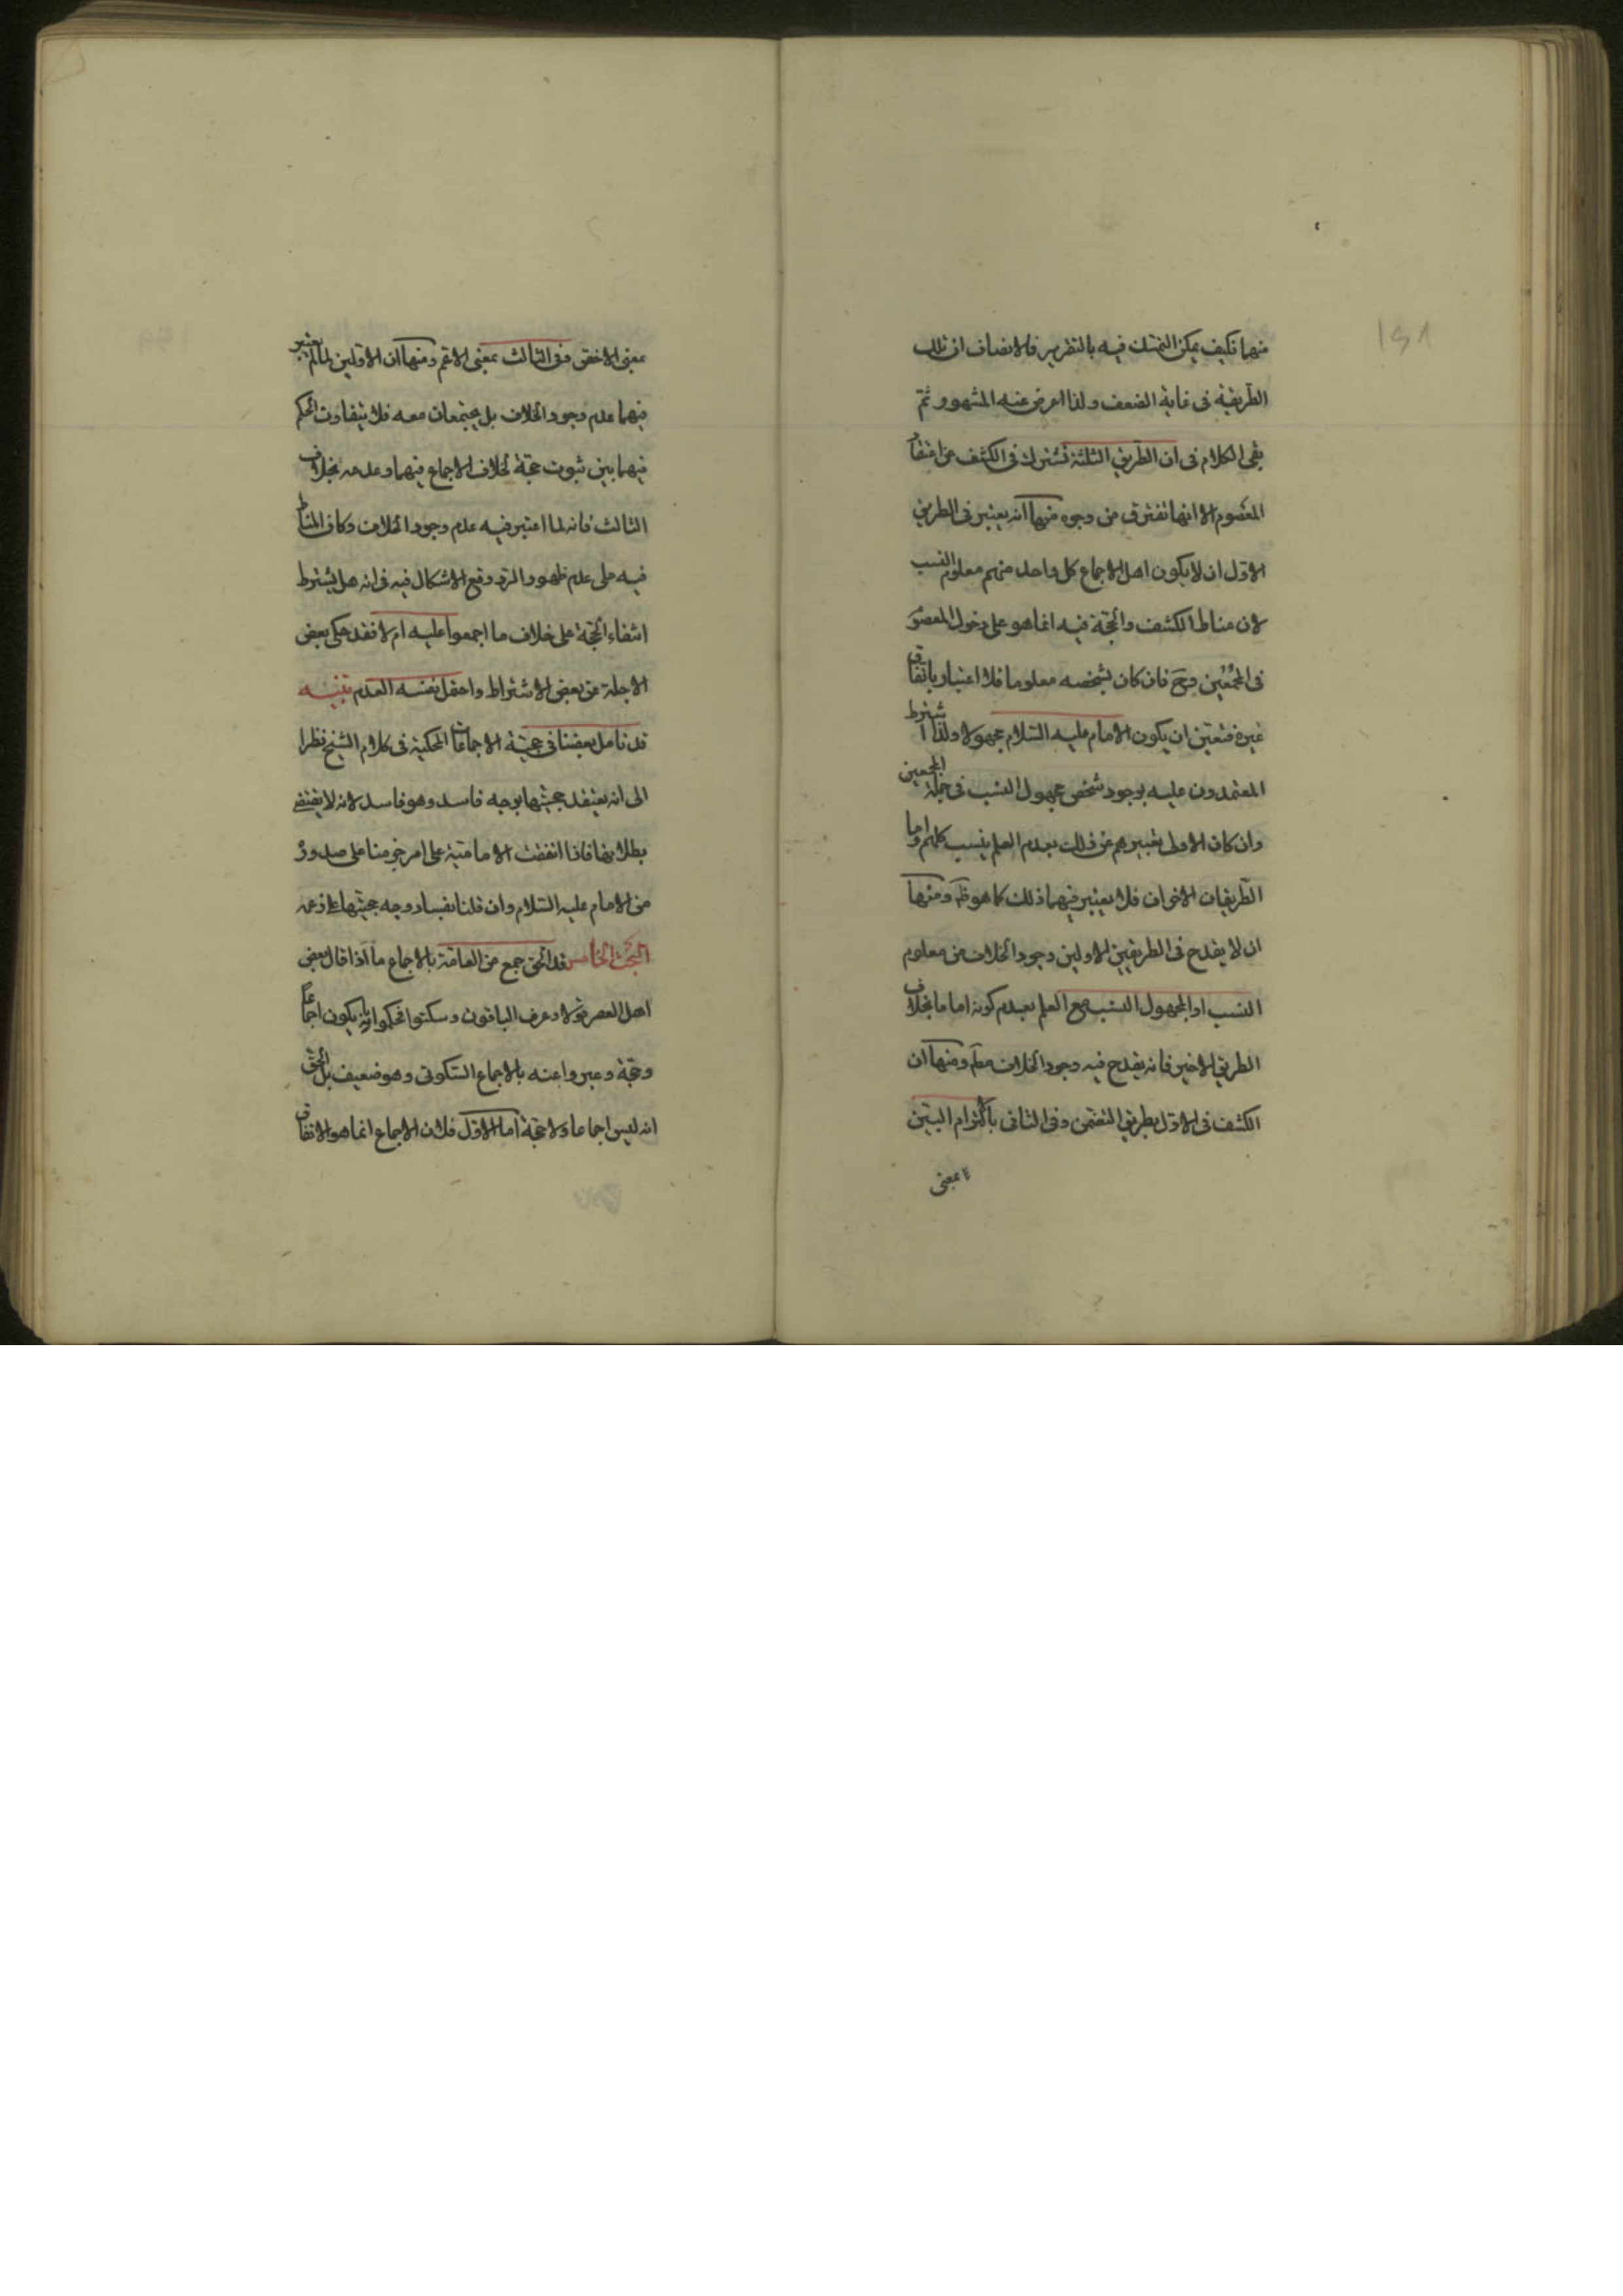 منهما فكيف يمكن التمسك فيه بالتقرير فالانصاف ان تلك
الطريقة فى غاية الضعف ولذا اعرض عنه المشهور ثم
بقى الكلام فى ان الطريق الثلثة تشترك فى الكشف عن اعتقاد
المعصوم الا انها تفترق من وجوه منها انه يعتبر فى الطريق
الاول ان لا يكون اهل الاجماع كل واحد منهم معلوم النسب
لان مناط الكشف والحجة فيه انما هو على دخول المعصوم
فى المجمعين وح فان كان بشخصه معلوما فلا اعتبار باتفاق
غيره فتعين ان يكون الامام عليه السلام مجهولا ولذا اشترط
المعتمدون عليه بوجود شخص مجهول النسب فى جملة المجمعين
وان كان الاولى تعبيرهم عن ذلك بعدم العلم بنسب كلهم واما
الطريقان الاخران فلا يعتبر فيهما ذلك كما هو ظ ومنها
ان لا يقدح فى الطريقين الاولين وجود الخلاف من معلوم
النسب او المجهول النسب مع العلم بعدم كونه اماما بخلاف
الطريق الاخير فانه يقدح فيه وجود الخلاف مط ومنها ان
الكشف فى الاول بطريق التضمن وفى الثانى بالتزام البين
بمعنى
۱۵۸
بمعنى الاخص وفى الثالث بمعنى الاعم ومنها ان الاولين لما لم يعتبر
فيهما عدم وجود الخلاف بل يجتمعان معه فلا يتفاوت الحكم
فيهما بين ثبوت حجة لخلاف الاجماع فيهما وعدمه بخلاف
الثالث فانه لما اعتبر فيه عدم وجود الخلاف وكان المناط
فيه على عدم ظهور الرد وقع الاشكال فيه فى انه هل يشترط
انتفاء الحجة على خلاف ما اجمعوا عليه ام لا فقد حكى بعض
الاجلة عن بعض الاشتراط واحتمل نفسه العدم تنبيه
قد تامل بعضنا فى حجية الاجماعات المحكية فى كلام الشيخ نظرا
الى انه يعتقد حجيتها بوجه فاسد وهو فاسد لانه لا يقتضى
بطلانها فاذا اتفقت الامامية على امر جزمنا على صدوره
من الامام عليه السلام وان قلنا بفساد وجه حجيتها على زعمه
البحث الخامس قد الحق جمع من العامة بالاجماع ما اذا قال بعض
اهل العصر قولا وعرف الباقون وسكتوا فحكموا بانه يكون اجماعا
وحجة وعبروا عنه بالاجماع السكوتى وهو ضعيف بل الحق
انه ليس اجماعا ولا حجة اما الاول فلان الاجماع انما هو الاتفاق